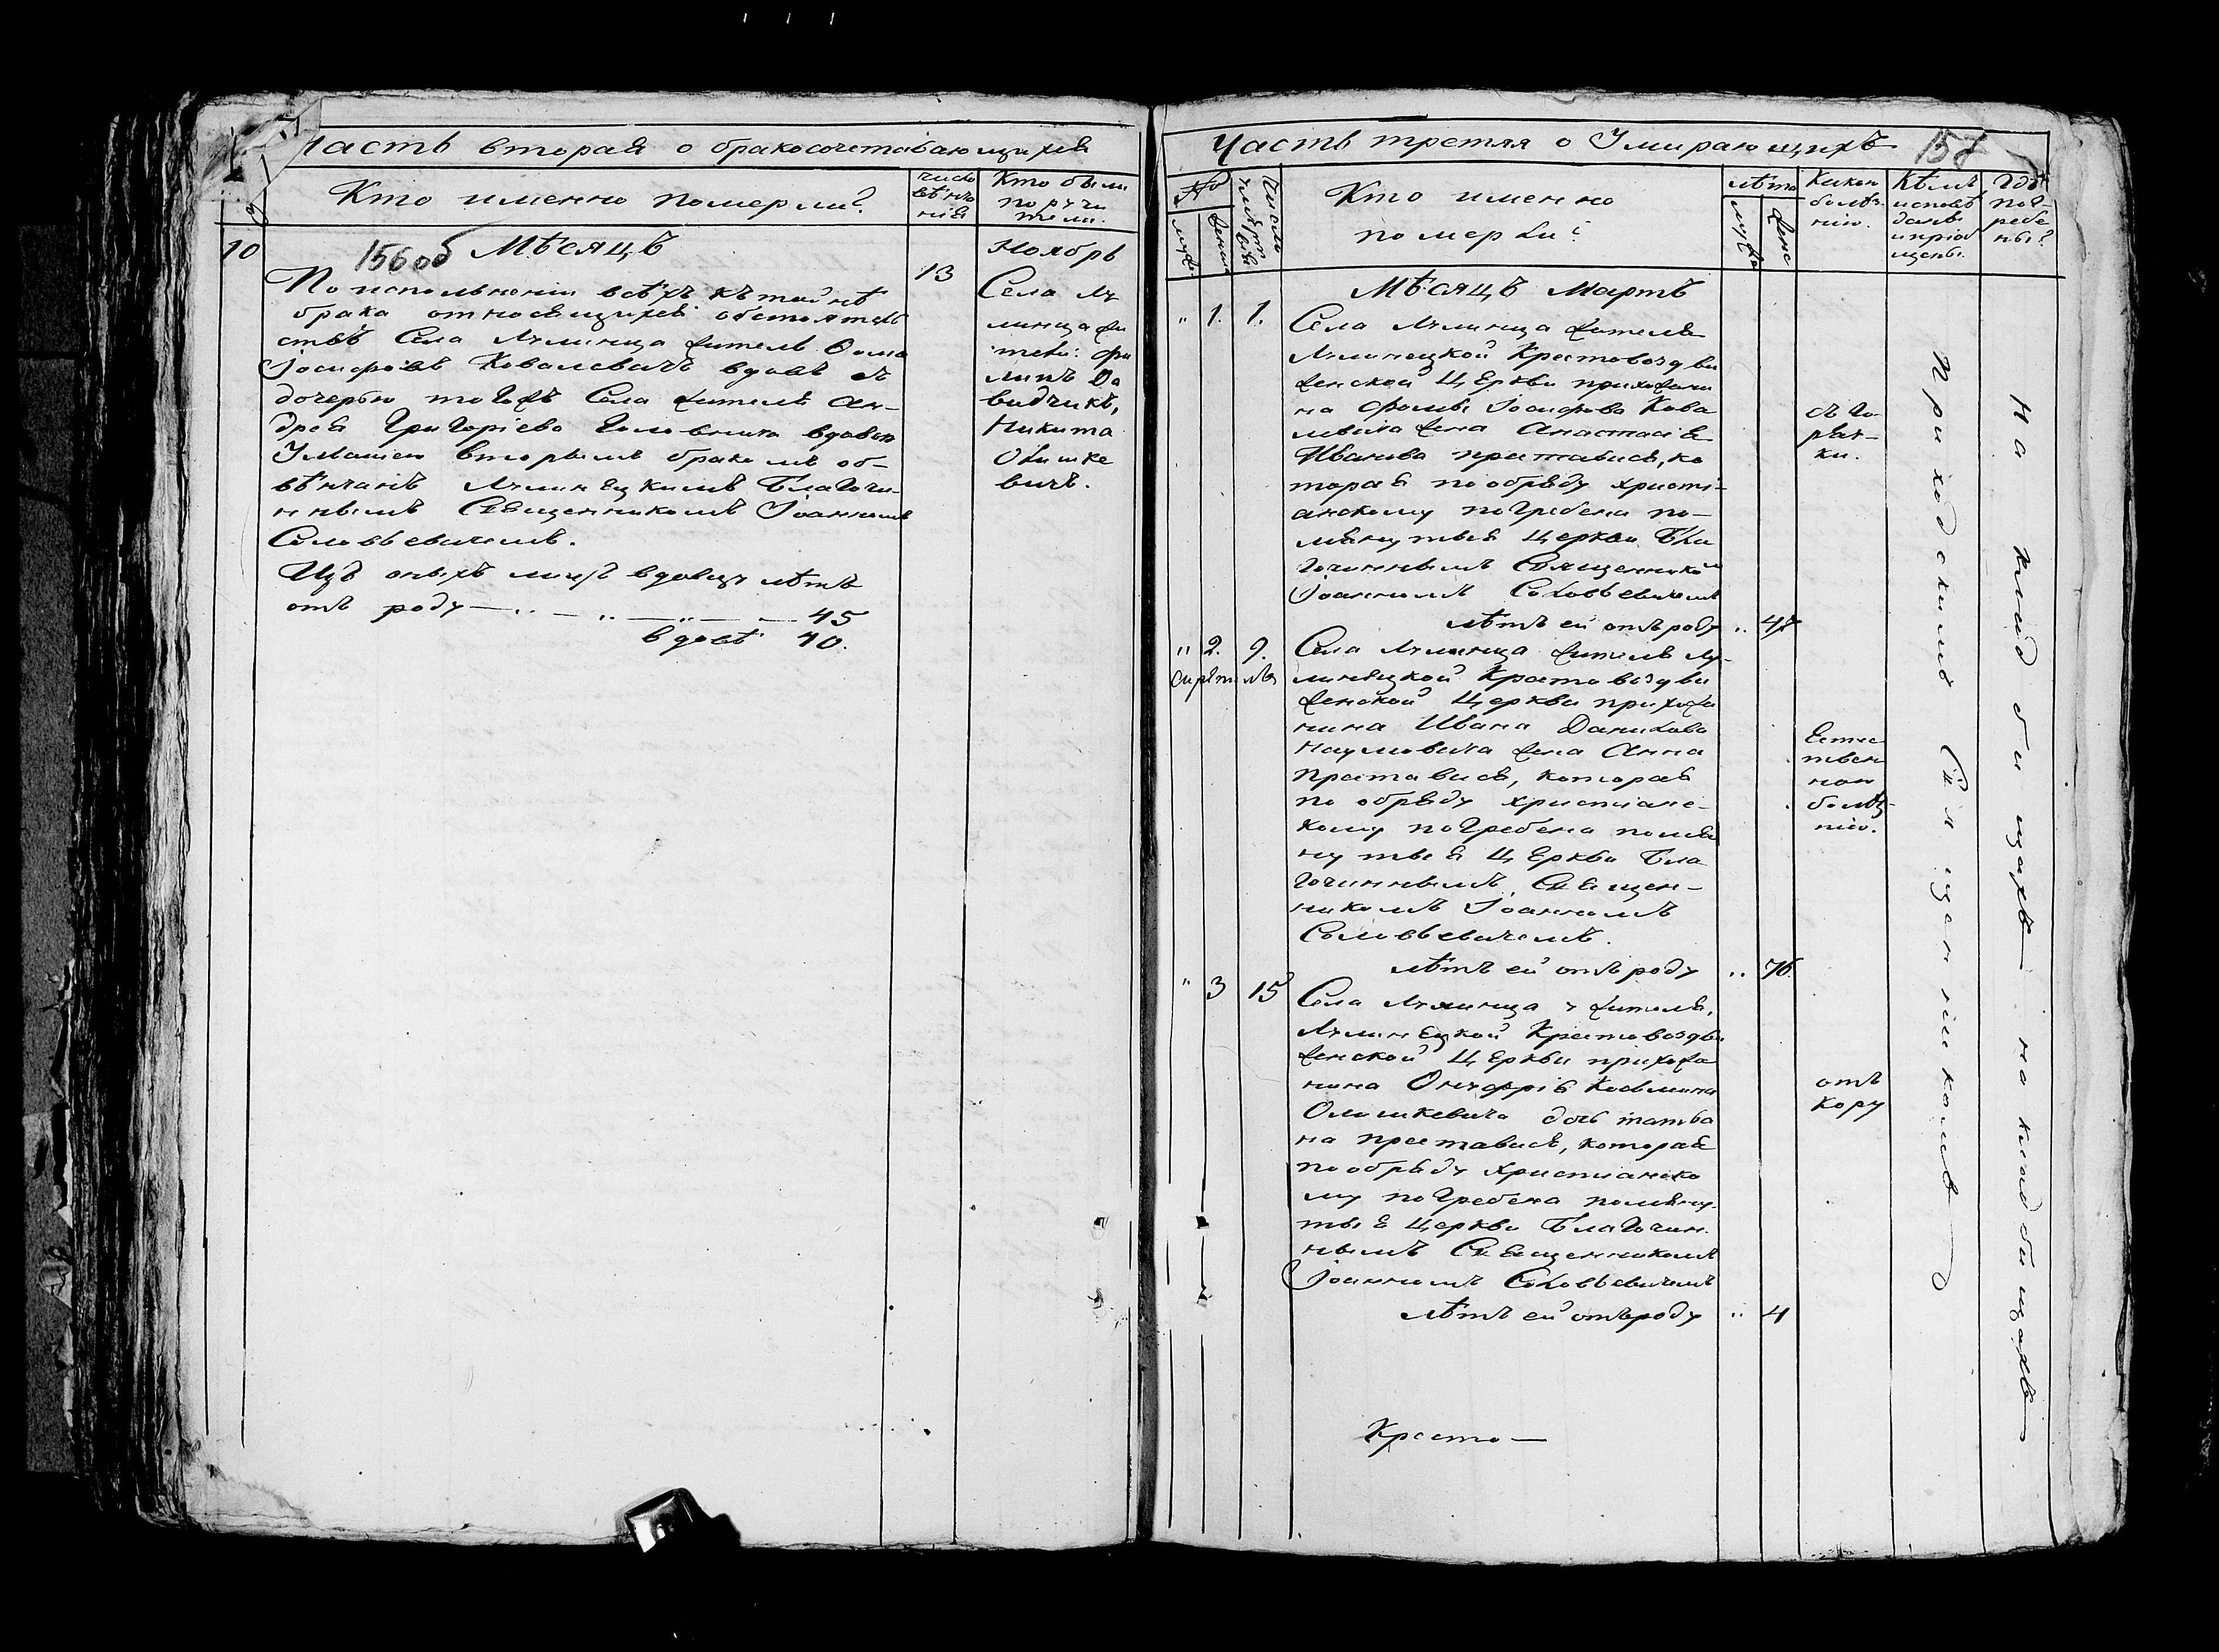 Часть вторая о бракосочетавающихся
Кто именно померли?
число вѣнчанія
Кто были поручители.
10
156 об
Мѣсяцъ
Ноябрь
13
По исполненіи всѣхъ къ тайнѣ
брака относящихся обстоятель
ствъ Села Лулинца житель Ѳома
Іосифовъ Ковалевичъ вдовъ съ
дочерью тогожъ Села жителя Ан-
дрея Григоріева Головчика вдовою
Ульяною вторымъ бракомъ об-
вѣнчанъ Лулинецкимъ Благочи-
ннымъ Священникомъ Іоанномъ
Соловьевичемъ.
Изъ оныхъ лицъ вдовцу лѣтъ
отъ роду 45
вдовѣ 40.
Села Лу
линца жи
тели: Фи
липъ Да
видчикъ,
Никита
Олишке
вичъ.
Часть третяя о Умирающихъ
158
№
муж.
женска
Число смерти
Кто именно
померли?
лѣта
муж.
жен.
Какою
болѣз-
нію.
Кѣмъ
исповѣ
даны
и пріоб
щены.
Гдѣ
пог-
ребе
ны?
Мѣсяцъ Мартъ
" 1. 1.
Села Лулинца жителя
Лулинецкой Крестовоздви
женской Церкви прихожани
на Фомы Іосифова Кова
левича жена Анастасія
Иванова преставися, ко
торая по обряду христі-
анскому погребена по-
мянутыя Церкви Бла
гочиннымъ Священнико
Іоанномъ Соловьевичемъ
лѣтъ ей отъ роду .. 47
съ го-
ряч-
ки.
" 2. 9.
Села Лулинца жителя Лу-
линецкой Крестовоздви
женской Церкви прихожа
нина Ивана Данилова
Наумовича жена Анна
преставися, которая
по обряду христіанс-
кому погребена помя
нутыя Церкви Бла
гочиннымъ Священ-
никомъ Іоанномъ
Соловьевичемъ.
лѣтъ ей отъ роду .. 76.
Естес
твен
ною
болѣз-
нію.
" 3 15
Села Лулинца жителя,
Лулинецкой Крестовоздви
женской Церкви прихожа
нина Онуфрія Козьмина
Олишкевича дочь Татья
на преставися, которая
по обряду христианско
му погребена помяну-
тыя Церкви Благочин-
нымъ Священникомъ
Іоанномъ Соловьевичемъ
лѣтъ ей отъ роду .. 4
отъ
кору
Кресто—
Приходскимъ Священникомъ
На кладбищахъ на кладбищахъ